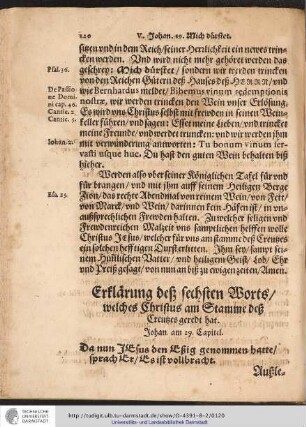 120 V. Johan. 19. Mich dürstet.
sitzen vnd in dem Reich/ seiner Herzlichkeit ein newes trincken
werden. Vnd wird nicht mehr gehöret werden das
Psal. 36. geschrey: Mich dürstet/ sondern wir werden trincken
von den Reichen Gütern deß Hauses deß HERRN/ vnd
De Passione Domini cap. 46. wie Bernhardus meldet/ Bibemus vinum redemptionis
nostræ, wir werden trincken den Wein vnser Erlösung.
Cantic. 2. Es wird vns Christus selbst mit frewden in seinen Weinkeller
Cantic. 5. führen/ vnd sagen: Esset meine Lieben/ vnd trincket
meine Freunde/ vnd werdet truncken: vnd wir werden jhm
Johan. 2. mit verwünderung antworten: Tu bonum vinum servasti
usque huc. Du hast den guten Wein behalten biß
hieher.
Werden also vber seiner Königlichen Tafel für vnd
für brangen/ vnd mit jhm auff seinem Heiligen Berge
Esa. 25. Zion/ das rechte Abendmal von reinem Wein/ von Fett/
von Marck/ vnd Wein/ darinnen kein Häfen ist/ in vnaußsprechlichen
Frewden halten. Zu welcher seligen vnd
Frewdenreichen Malzeit vns sämptlichen helffen wolle
Christus JEsus/ welcher für vns am stammen deß Creutzes
ein solchen hefftigen Durst erlitten. Ihm sey/ sampt seinem
Himlischen Vatter/ vnd heiligem Geist/ Lob/ Ehr
vnd Preiß gesagt/ von nun an biß zu ewigen zeiten/ Amen.
Erklärung deß sechsten Worts/
welches Christus am Stamme deß
Creutzes geredt hat.
Johan am 19. Capitel.
Da nun JEsus den Eßig genommen hatte/
sprach Er/ Es ist vollbracht.
Außle-
TECHNISCHE
UNIVERSITÄT
DARMSTADT
http://tudigit.ulb.tu-darmstadt.de/show/O-4391-8-2/0120
Universitäts- und Landesbibliothek Darmstadt